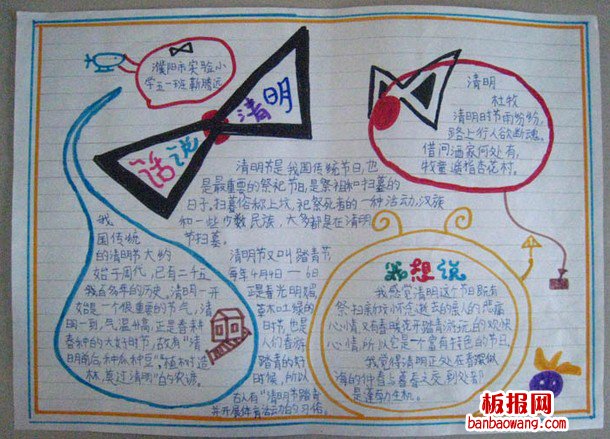 濮阳市实验小
学五一班靳腾远
话说清明
清明
杜牧
清明时节雨纷纷,
路上行人欲断魂。
借问酒家何处有,
牧童遥指杏花村。
清明节是我国传统节日,也
是最重要的祭祀节日,是祭祖和扫墓的
日子。扫墓俗称上坟,祀祭死者的一种活动。汉族
和一些少数民族,大多都是在清明
节扫墓。
我
国传统
的清明节大约
始于周代,已有二千五
百多年的历史。清明一开
始是一个很重要的节气,清
明一到,气温升高,正是春耕
春种的大好时节,故有“清
明前后,种瓜种豆”。“植树造
林,莫过清明”的农谚。
清明节又叫踏青节,
每年4月4日—6日
正是春光明媚,
草木吐绿的
日时节,也是
人们春游
踏青的好
时候,所以
古人有“清明节踏青
并开展体育活动的习俗。
我想说
我感觉清明这个节日既有
祭扫新坟怀念逝去的亲人的悲痛
心情,又有春暖花开踏青游玩的欢快
心情,所以它是一个富有特色的节日。
我觉得清明正处在春深似
海的仲春与暮春之交,到处都
是蓬勃生机。
板报网
banbaowang.com